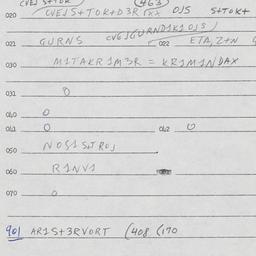 020 CVEJS+TOK+D3RIXX OJS S+TOK+
021 GURNS CVGJGURND1K1OJS)
022 ETA, Z+N
030 M1TAKR1M3R = KR1M1NDAX
031 O
040 O
041 O 042 O
050 NOS1S+ROJ
060 R1NV1
070 O
901 AR1S+3RVORT (408 (170